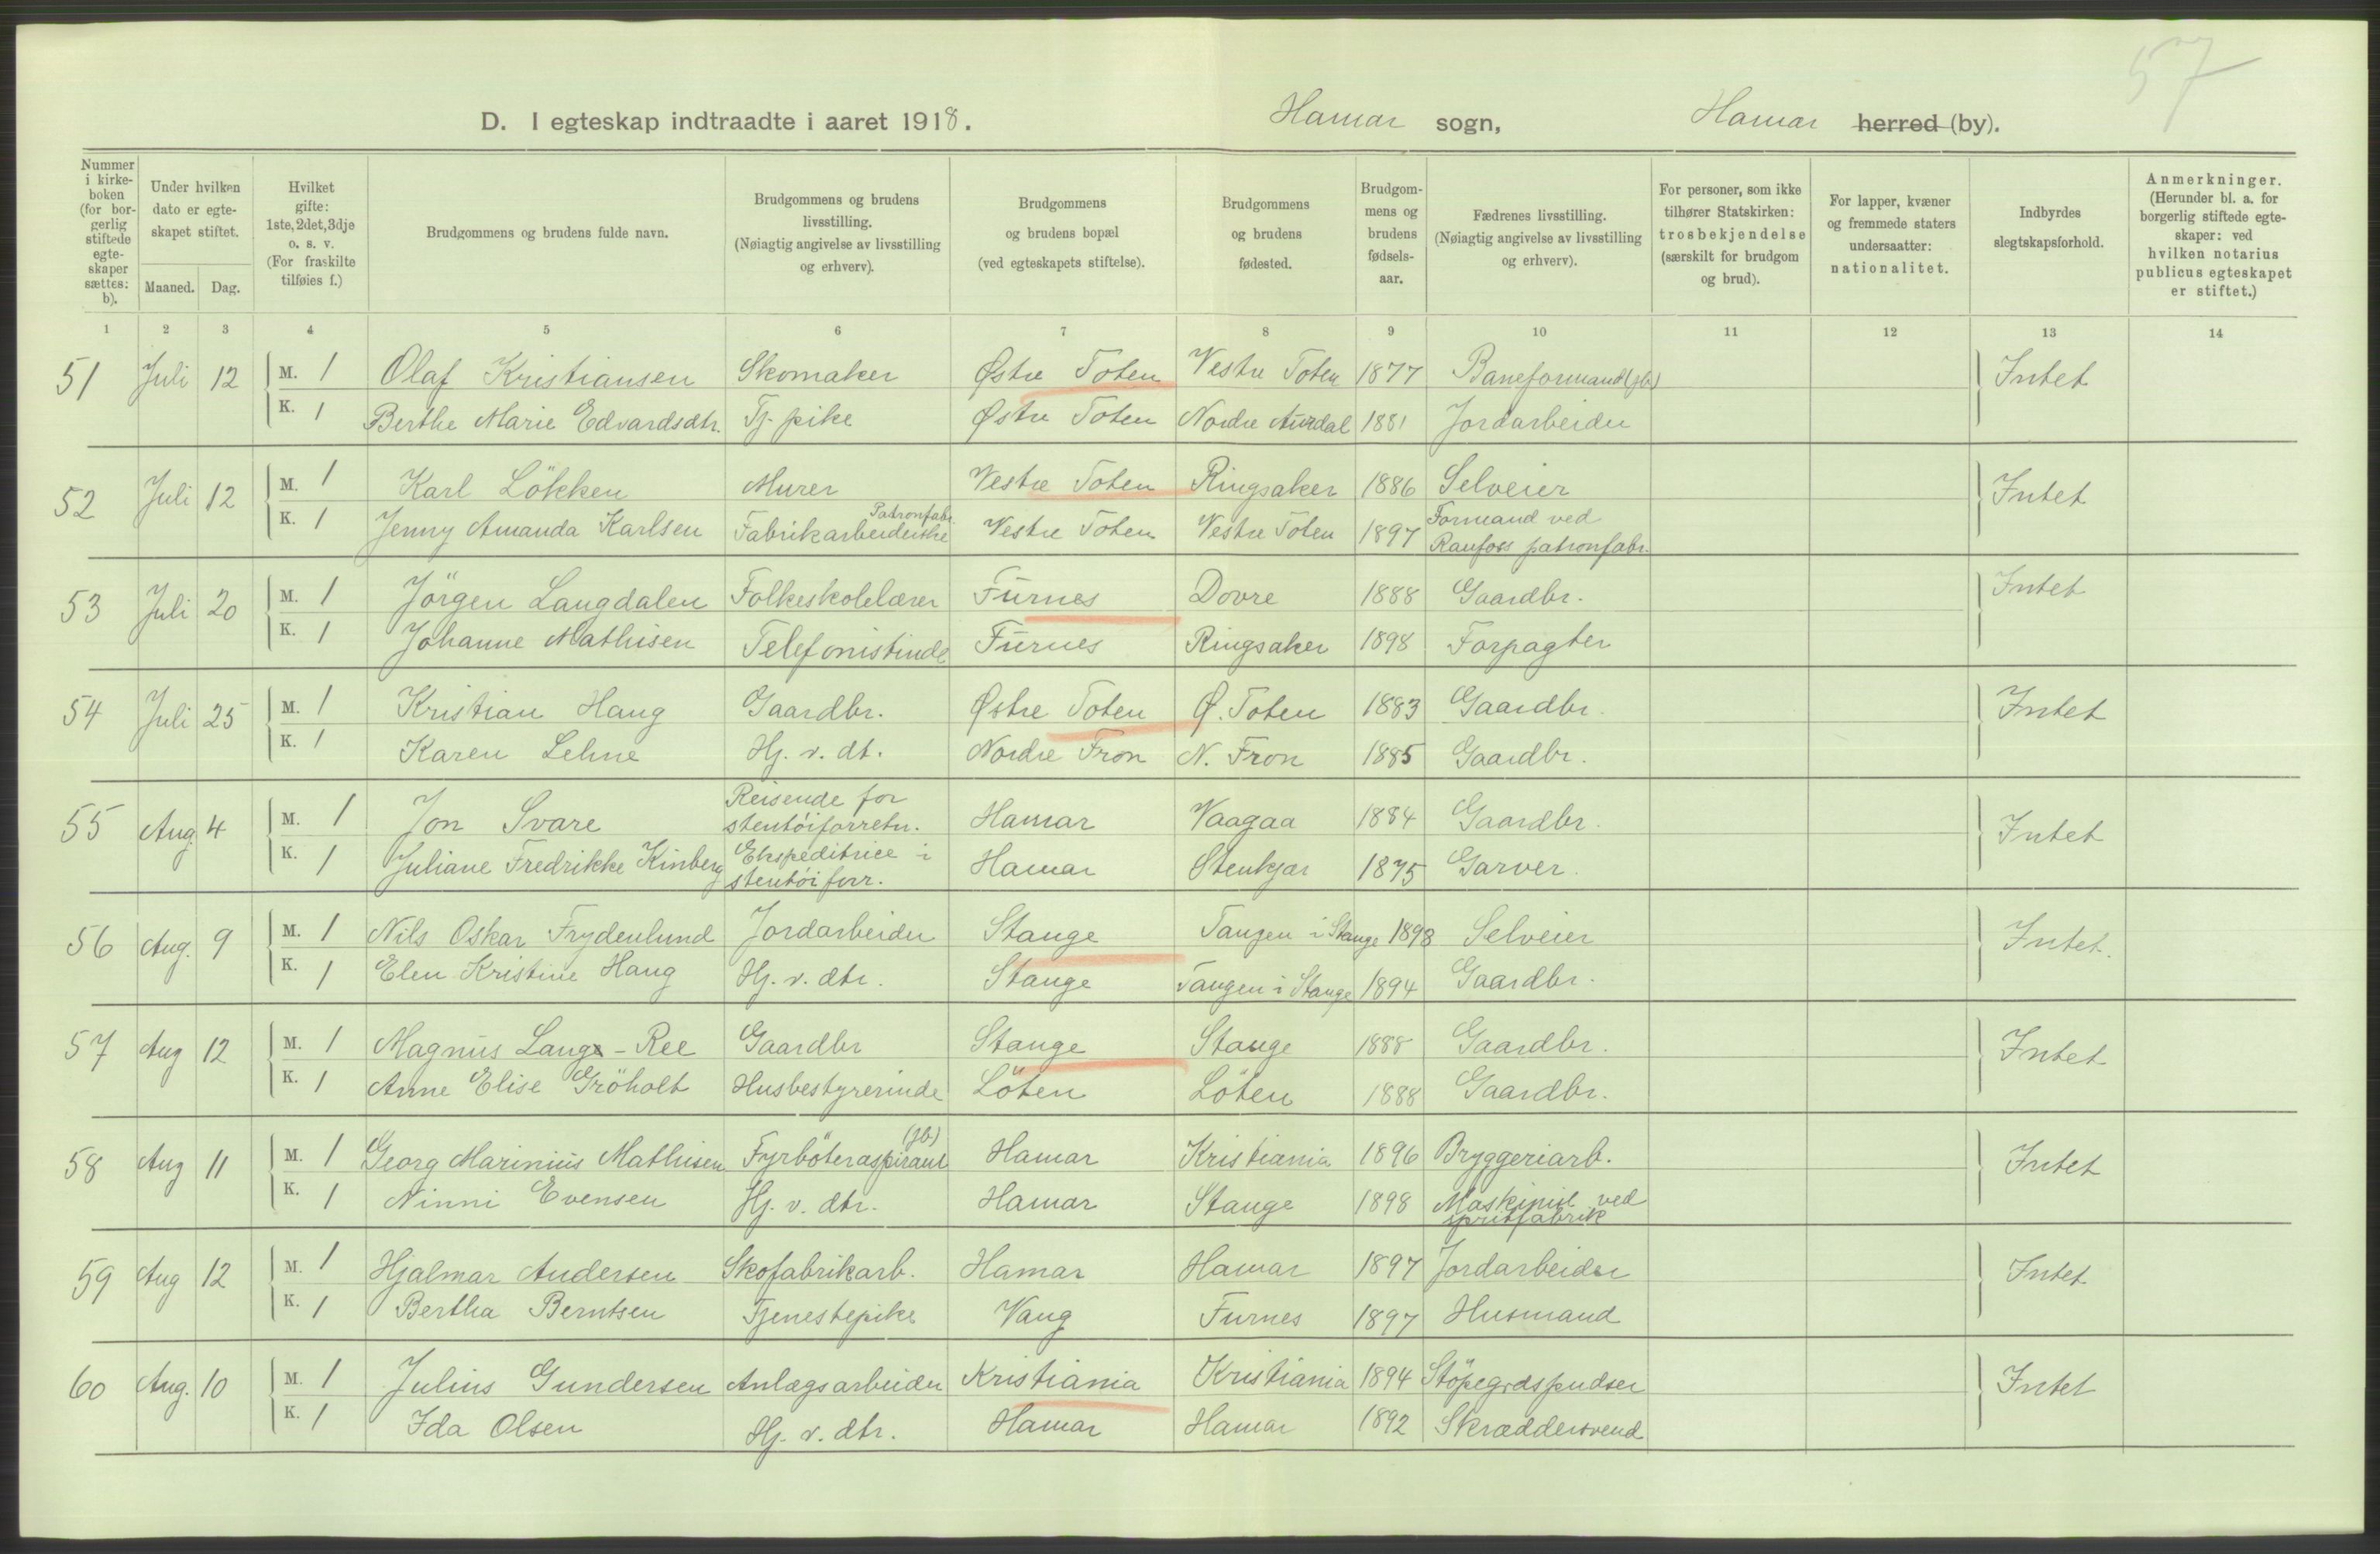 57
D. I egteskap indtraadte i aaret 1918. Hamar sogn, Hamar herred (by).
Nummer i kirkeboken (for borgerlig stiftede egteskaper sættes: b).
Under hvilken dato er egteskapet stiftet.
Maaned. Dag.
Hvilket gifte: 1ste, 2det, 3dje o. s. v. (For fraskilte tilføies f.)
Brudgommens og brudens fulde navn.
Brudgommens og brudens livsstilling. (Nøiagtig angivelse av livsstilling og erhverv).
Brudgommens og brudens bopæl (ved egteskapets stiftelse).
Brudgommens og brudens fødested.
Brudgommens og brudens fødselsaar.
Fædrenes livsstilling. (Nøiagtig angivelse av livsstilling og erhverv).
For personer, som ikke tilhører Statskirken: trosbekjendelse (særskilt for brudgom og brud).
For lapper, kvæner og fremmede staters undersaatter: nationalitet.
Indbyrdes slegtskapsforhold.
Anmerkninger. (Herunder bl. a. for borgerlig stiftede egteskaper: ved hvilken notarius publicus egteskapet er stiftet.)
1 2 3 4 5 6 7 8 9 10 11 12 13 14
51 Juli 12 M. 1 Olaf Kristiansen Skomaker Østre Toten Vestre Toten 1877 Baneformand (jb) Intet
K. 1 Berthe Marie Edvardsdtr. Tj. pike Østre Toten Nordre Aurdal 1881 Jordarbeider
52 Juli 12 M. 1 Karl Lökken Murer Vestre Toten Ringsaker 1886 Selveier Intet
K. 1 Jenny Amanda Karlsen Fabrikarbeiderske Patronfabr. Vestre Toten Vestre Toten 1897 Formand ved
Raufoss patronfabr.
53 Juli 20 M. 1 Jörgen Langdalen Folkeskolelærer Furnes Dovre 1888 Gaardbr. Intet
K. 1 Johanne Mathisen Telefonistinde Furnes Ringsaker 1898 Forpagter
54 Juli 25 M. 1 Kristian Haug Gaardbr. Østre Toten Ø. Toten 1883 Gaardbr. Intet
K. 1 Karen Lehne Hj. v. dt. Nordre Fron N. Fron 1885 Gaardbr.
55 Aug. 4 M. 1 Jon Svare Reisende for
stentöiforretn. Hamar Vaagaa 1884 Gaardbr. Intet
K. 1 Juliane Fredrikke Kinberg Ekspeditrice i
stentöiforr. Hamar Stenkjær 1875 Garver.
56 Aug. 9 M. 1 Nils Oskar Frydenlund Jordarbeider Stange Tangen i Stange 1898 Selveier Intet.
K. 1 Elen Kristine Haug Hj. v. dtr. Stange Tangen i Stange 1894 Gaardbr.
57 Aug 12 M. 1 Magnus Lang-Ree Gaardbr Stange Stange 1888 Gaardbr. Intet
K. 1 Anne Elise Gröholt Husbestyrerinde Löten Löten 1888 Gaardbr.
58 Aug 11 M. 1 Georg Marinius Mathisen Fyrböteraspirant (jb) Hamar Kristiania 1896 Bryggeriarb. Intet
K. 1 Ninni Evensen Hj. v. dtr. Hamar Stange 1898 Maskinist ved
spritfabrik
59 Aug 12 M. 1 Hjalmar Andersen Skofabrikarb. Hamar Hamar 1897 Jordarbeider Intet
K. 1 Bertha Berntsen Tjenestepike Vang Furnes 1897 Husmand
60 Aug. 10 M. 1 Julius Gundersen Anlægsarbeider Kristiania Kristiania 1894 Stöpegodspudser Intet
K. 1 Ida Olsen Hj. v. dtr. Hamar Hamar 1892 Skræddersvend